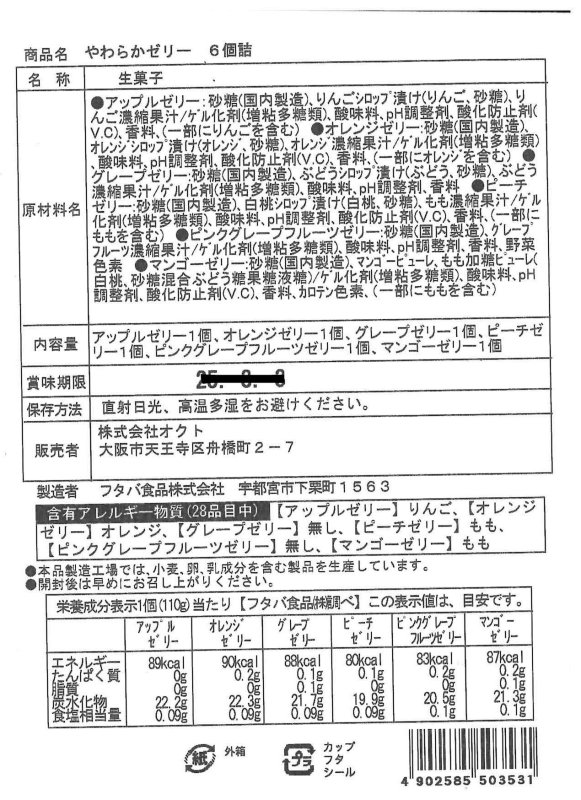 商品名 やわらかゼリー 6個詰
名称 生菓子
原材料名
●アップルゼリー:砂糖(国内製造)、りんごシロップ漬け(りんご、砂糖)、り
んご濃縮果汁/ゲル化剤(増粘多糖類)、酸味料、pH調整剤、酸化防止剤(
V.C)、香料、(一部にりんごを含む) ●オレンジゼリー:砂糖(国内製造)、
オレンジシロップ漬け(オレンジ、砂糖)、オレンジ濃縮果汁/ゲル化剤(増粘多糖類)
、酸味料、pH調整剤、酸化防止剤(V.C)、香料、(一部にオレンジを含む) ●
グレープゼリー:砂糖(国内製造)、ぶどうシロップ漬け(ぶどう、砂糖)、ぶどう
濃縮果汁/ゲル化剤(増粘多糖類)、酸味料、pH調整剤、香料 ●ピーチ
ゼリー:砂糖(国内製造)、白桃シロップ漬け(白桃、砂糖)、もも濃縮果汁/ゲル
化剤(増粘多糖類)、酸味料、pH調整剤、酸化防止剤(V.C)、香料、(一部に
ももを含む) ●ピンクグレープフルーツゼリー:砂糖(国内製造)、グレープ
フルーツ濃縮果汁/ゲル化剤(増粘多糖類)、酸味料、pH調整剤、香料、野菜
色素 ●マンゴーゼリー:砂糖(国内製造)、マンゴーピューレ、もも加糖ピューレ(
白桃、砂糖混合ぶどう糖果糖液糖)/ゲル化剤(増粘多糖類)、酸味料、pH
調整剤、酸化防止剤(V.C)、香料、カロテン色素、(一部にももを含む)
内容量
アップルゼリー1個、オレンジゼリー1個、グレープゼリー1個、ピーチゼ
リー1個、ピンクグレープフルーツゼリー1個、マンゴーゼリー1個
賞味期限
保存方法 直射日光、高温多湿をお避けください。
販売者 株式会社オクト
大阪市天王寺区舟橋町2-7
製造者 フタバ食品株式会社 宇都宮市下栗町1563
含有アレルギー物質(28品目中) 【アップルゼリー】りんご、【オレンジ
ゼリー】オレンジ、【グレープゼリー】無し、【ピーチゼリー】もも、
【ピンクグレープフルーツゼリー】無し、【マンゴーゼリー】もも
●本品製造工場では、小麦、卵、乳成分を含む製品を生産しています。
●開封後は早めにお召し上がりください。
栄養成分表示1個(110g)当たり【フタバ食品㈱調べ】この表示値は、目安です。
アップル オレンジ グレープ ピーチ ピンクグレープ マンゴー
ゼリー ゼリー ゼリー ゼリー フルーツゼリー ゼリー
エネルギー 89kcal 90kcal 88kcal 80kcal 83kcal 87kcal
たんぱく質 0g 0.2g 0.1g 0.1g 0.2g 0.2g
脂質 0g 0g 0.1g 0g 0g 0.1g
炭水化物 22.2g 22.3g 21.7g 19.9g 20.5g 21.3g
食塩相当量 0.09g 0.09g 0.09g 0.09g 0.1g 0.1g
紙 外箱
プラ カップ
フタ
シール
4 902585 503531